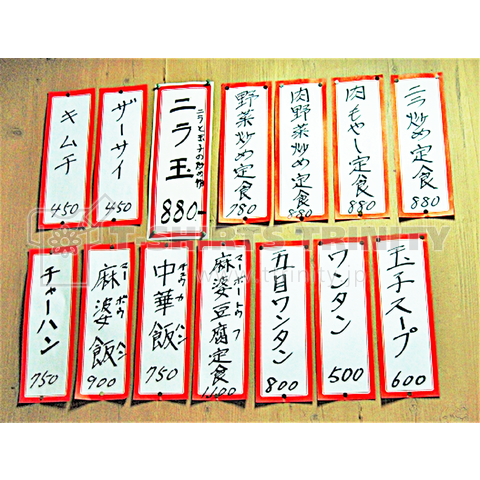 キムチ
450
ザーサイ
450
ニラ玉
ニラと玉子の炒め物
880-
野菜炒め定食
780
肉野菜炒め定食
880
肉もやし定食
880
ニラ炒め定食
880
チャーハン
750
麻婆飯
マーボウハン
900
中華飯
チウカハン
750
麻婆豆腐定食
マーボートウフ
1100
五目ワンタン
800
ワンタン
500
玉子スープ
600
T-SHIRTS TRINITY